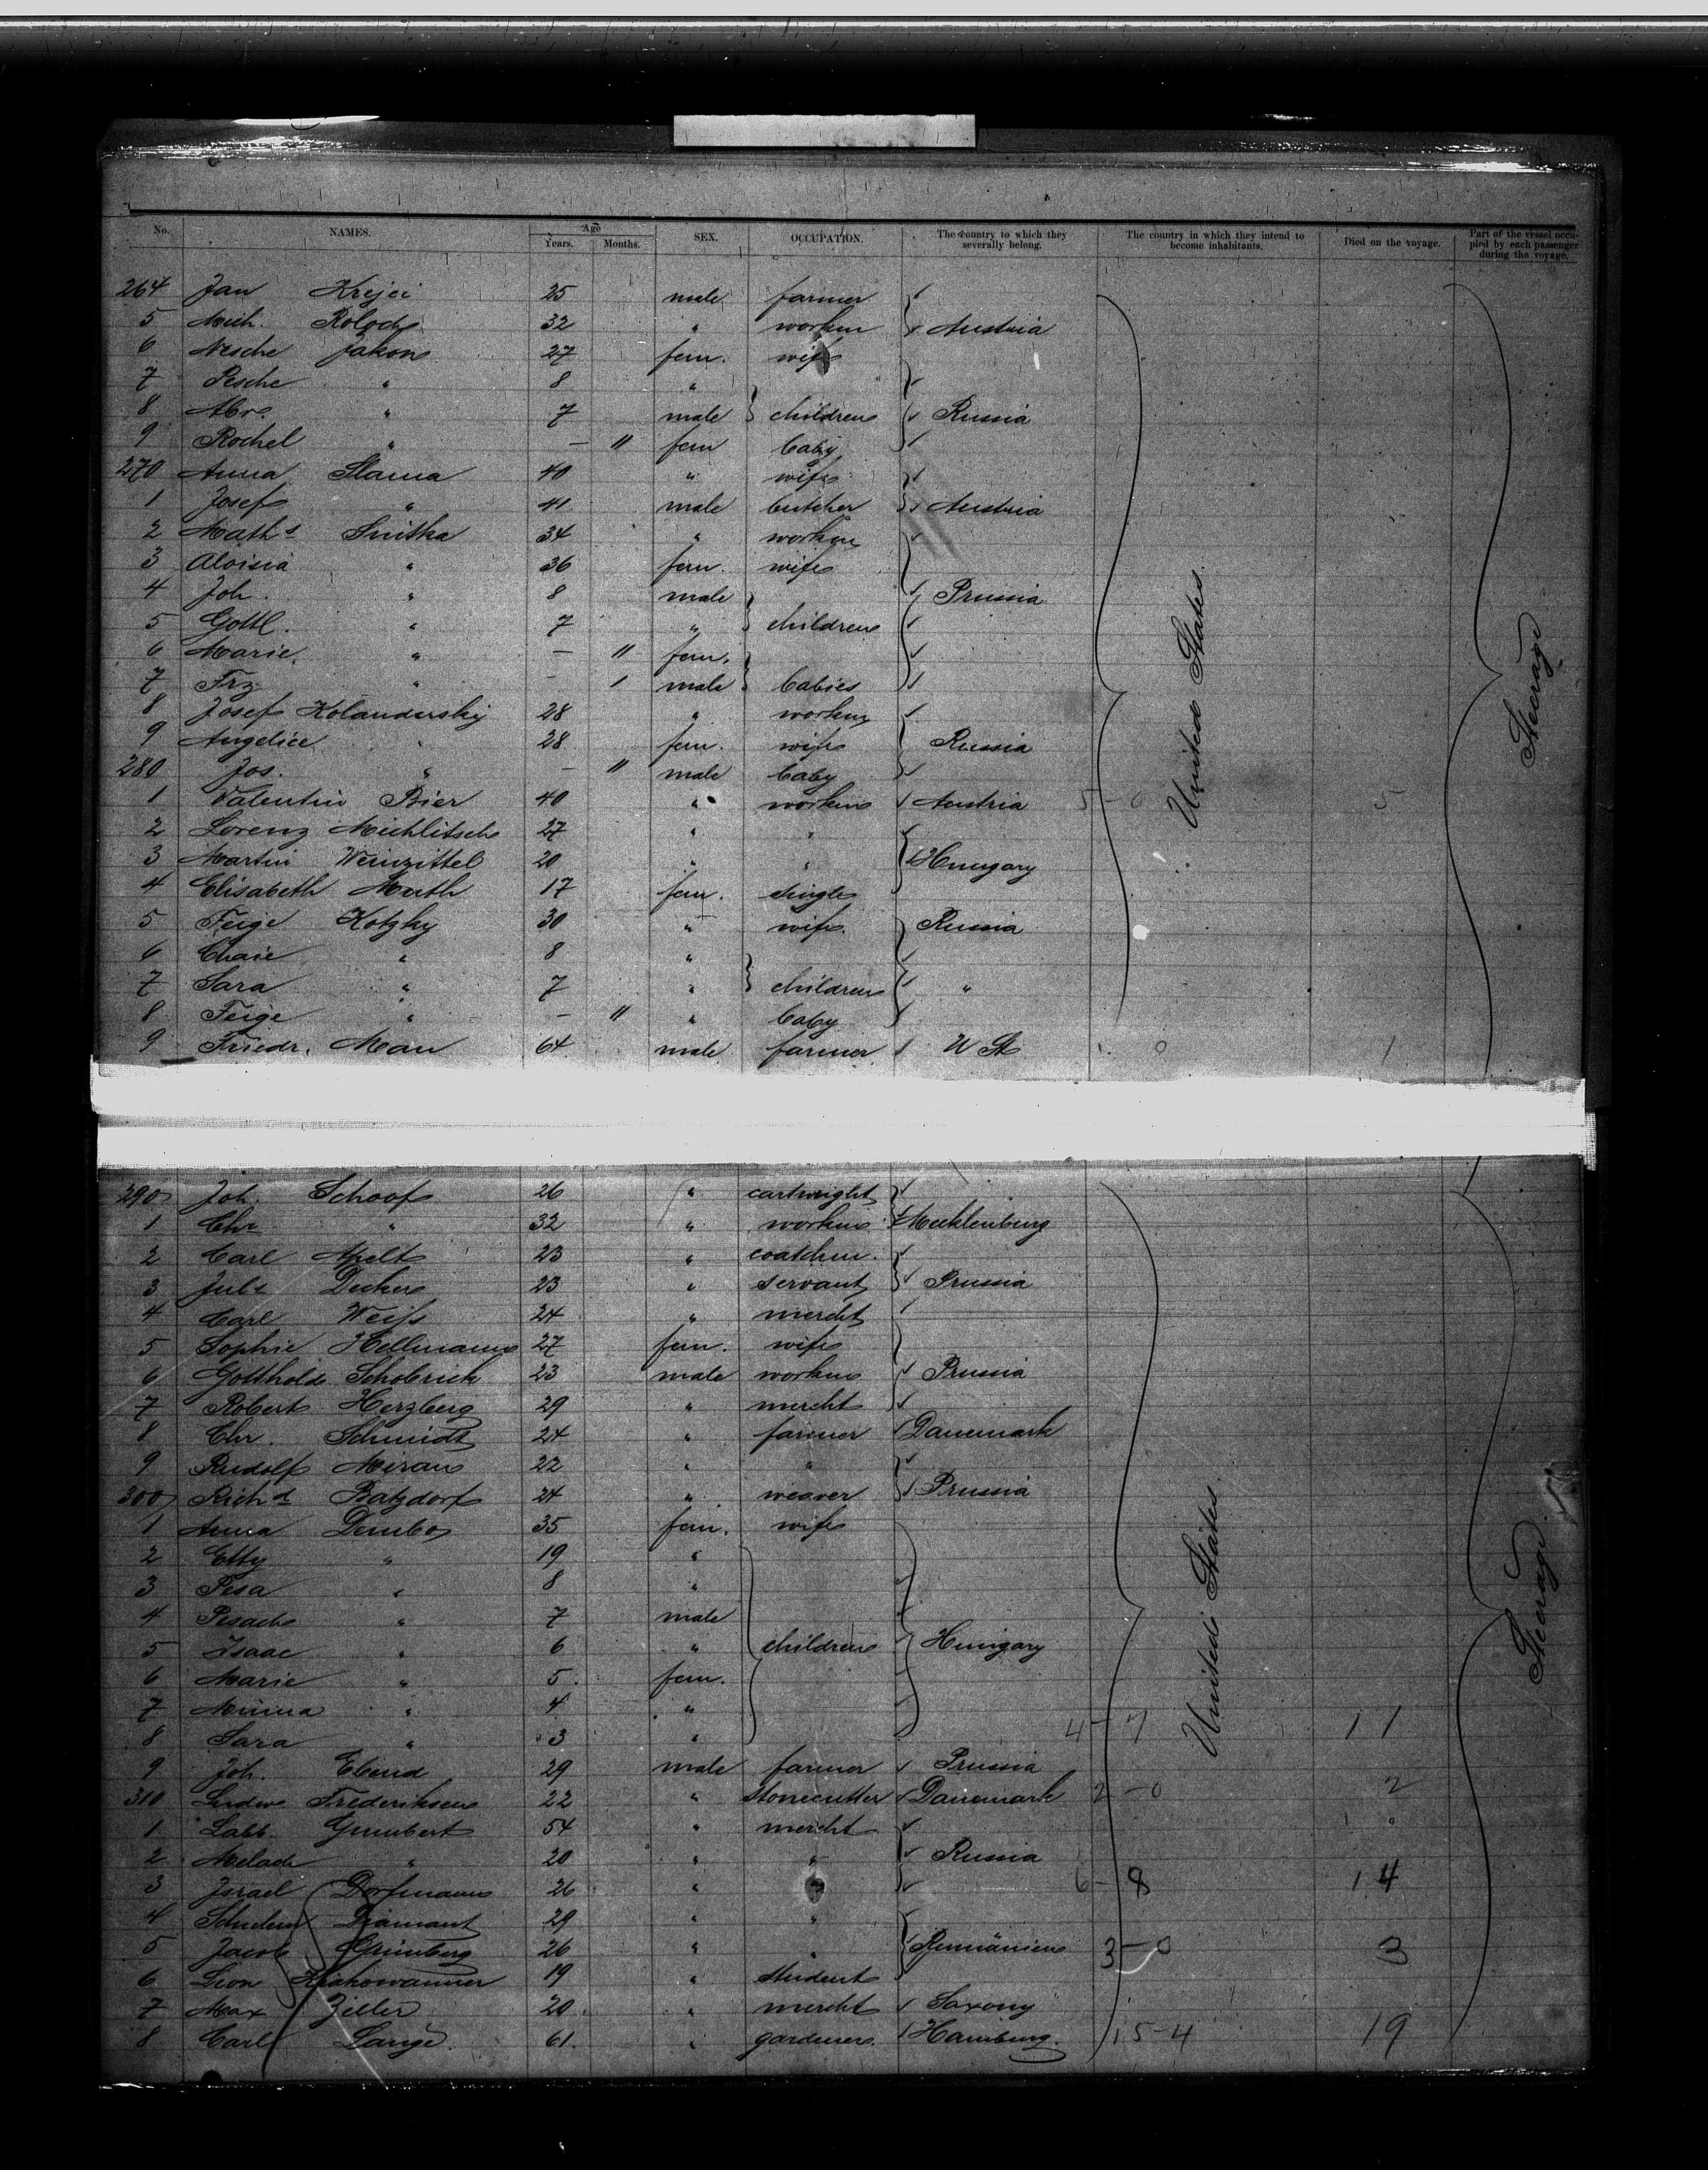 No. NAMES. Age Years. Months. SEX. OCCUPATION. The country to which they severally belong. The country in which they intend to become inhabitants. Died on the voyage. Part of the vessel occupied by each passenger during the voyage.
264 Jan Krejci 25 male farmer
5 Mich. 32 " workm Austria
6 Nesche Jakon 27 fem. wife
7 Pesche " 8 "
8 Abr. " 7 male children Russia
9 Rochel " — 11 fem baby
270 Anna Slama 40 " wife
1 Josef " 41 male butcher Austria
2 Maths Snitka 34 " workm
3 Aloisia " 36 fem. wife
4 Joh. " 8 male Prussia
5 Gottl. " 7 " children
6 Marie " — 11 fem.
7 Frz " — 1 male babies
8 Josef Kolandersky 28 " workm
9 Angelice " 28 fem. wife Russia
280 Jos. " — 11 male baby
1 Valentin Bier 40 " workm Austria 5-0 5
2 Lorenz Michlitsch 27 " "
3 Martin Weinzittel 20 " " Hungary
4 Elisabeth Muth 17 fem. single
5 Feige Kotzky 30 " wife Russia
6 Chaie " 8 "
7 Sara " 7 " children "
8 Feige " — 11 " baby
9 Friedr. Mau 64 male farmer U St 1 0 1
United States
Steerage
290 Joh. Schoof 26 " cartwright
1 Chr " 32 " workm Mecklenburg
2 Carl Apelt 23 " coatchm.
3 Juls Decker 23 " servant Prussia
4 Carl Weiss 24 " mercht
5 Sophie Hellmann 27 fem. wife
6 Gotthold Schobrick 23 male workm Prussia
7 Robert Herzberg 29 " mercht
8 Chr. Schmidt 24 " farmer Danemark
9 Rudolf Meran 22 " "
300 Richd Batzdorf 24 " weaver Prussia
1 Anna Dembo 35 fem. wife
2 Etty " 19 "
3 Pesa " 8 "
4 Pesach " 7 male
5 Isaac " 6 " children Hungary
6 Marie " 5 fem.
7 Minna " 4 "
8 Sara " 3 " 4-7 11
9 Joh. 29 male farmer Prussia
310 Ludw. Frederiksen 22 " Stonecutter Danemark 2-0 2
1 Labb. Gumbert 54 " mercht "
2 Melach " 20 " " Russia
3 Israel Dorfmann 26 " " 6-8 14
4 Diamant 29 " "
5 Jacob Grünberg 26 " " Rumänien 3-0 3
6 Leon 19 " student
7 Max Ziller 20 " mercht Saxony
8 Carl Lange 61 " gardener. Hamburg 15-4 19
United States
Steerage